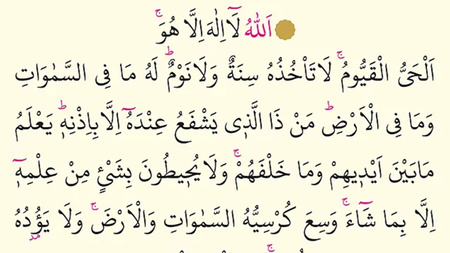 اَللّٰهُ لَٓا اِلٰهَ اِلَّا هُوَۚ
اَلْحَيُّ الْقَيُّومُۚ لَا تَأْخُذُهُ سِنَةٌ وَلَا نَوْمٌۜ لَهُ مَا فِي السَّمٰوَاتِ
وَمَا فِي الْاَرْضِۜ مَنْ ذَا الَّذ۪ي يَشْفَعُ عِنْدَهُٓ اِلَّا بِاِذْنِه۪ۜ يَعْلَمُ
مَا بَيْنَ اَيْد۪يهِمْ وَمَا خَلْفَهُمْۚ وَلَا يُح۪يطُونَ بِشَيْءٍ مِنْ عِلْمِه۪ٓ
اِلَّا بِمَا شَٓاءَۚ وَسِعَ كُرْسِيُّهُ السَّمٰوَاتِ وَالْاَرْضَۚ وَلَا يَؤُ۫دُهُ